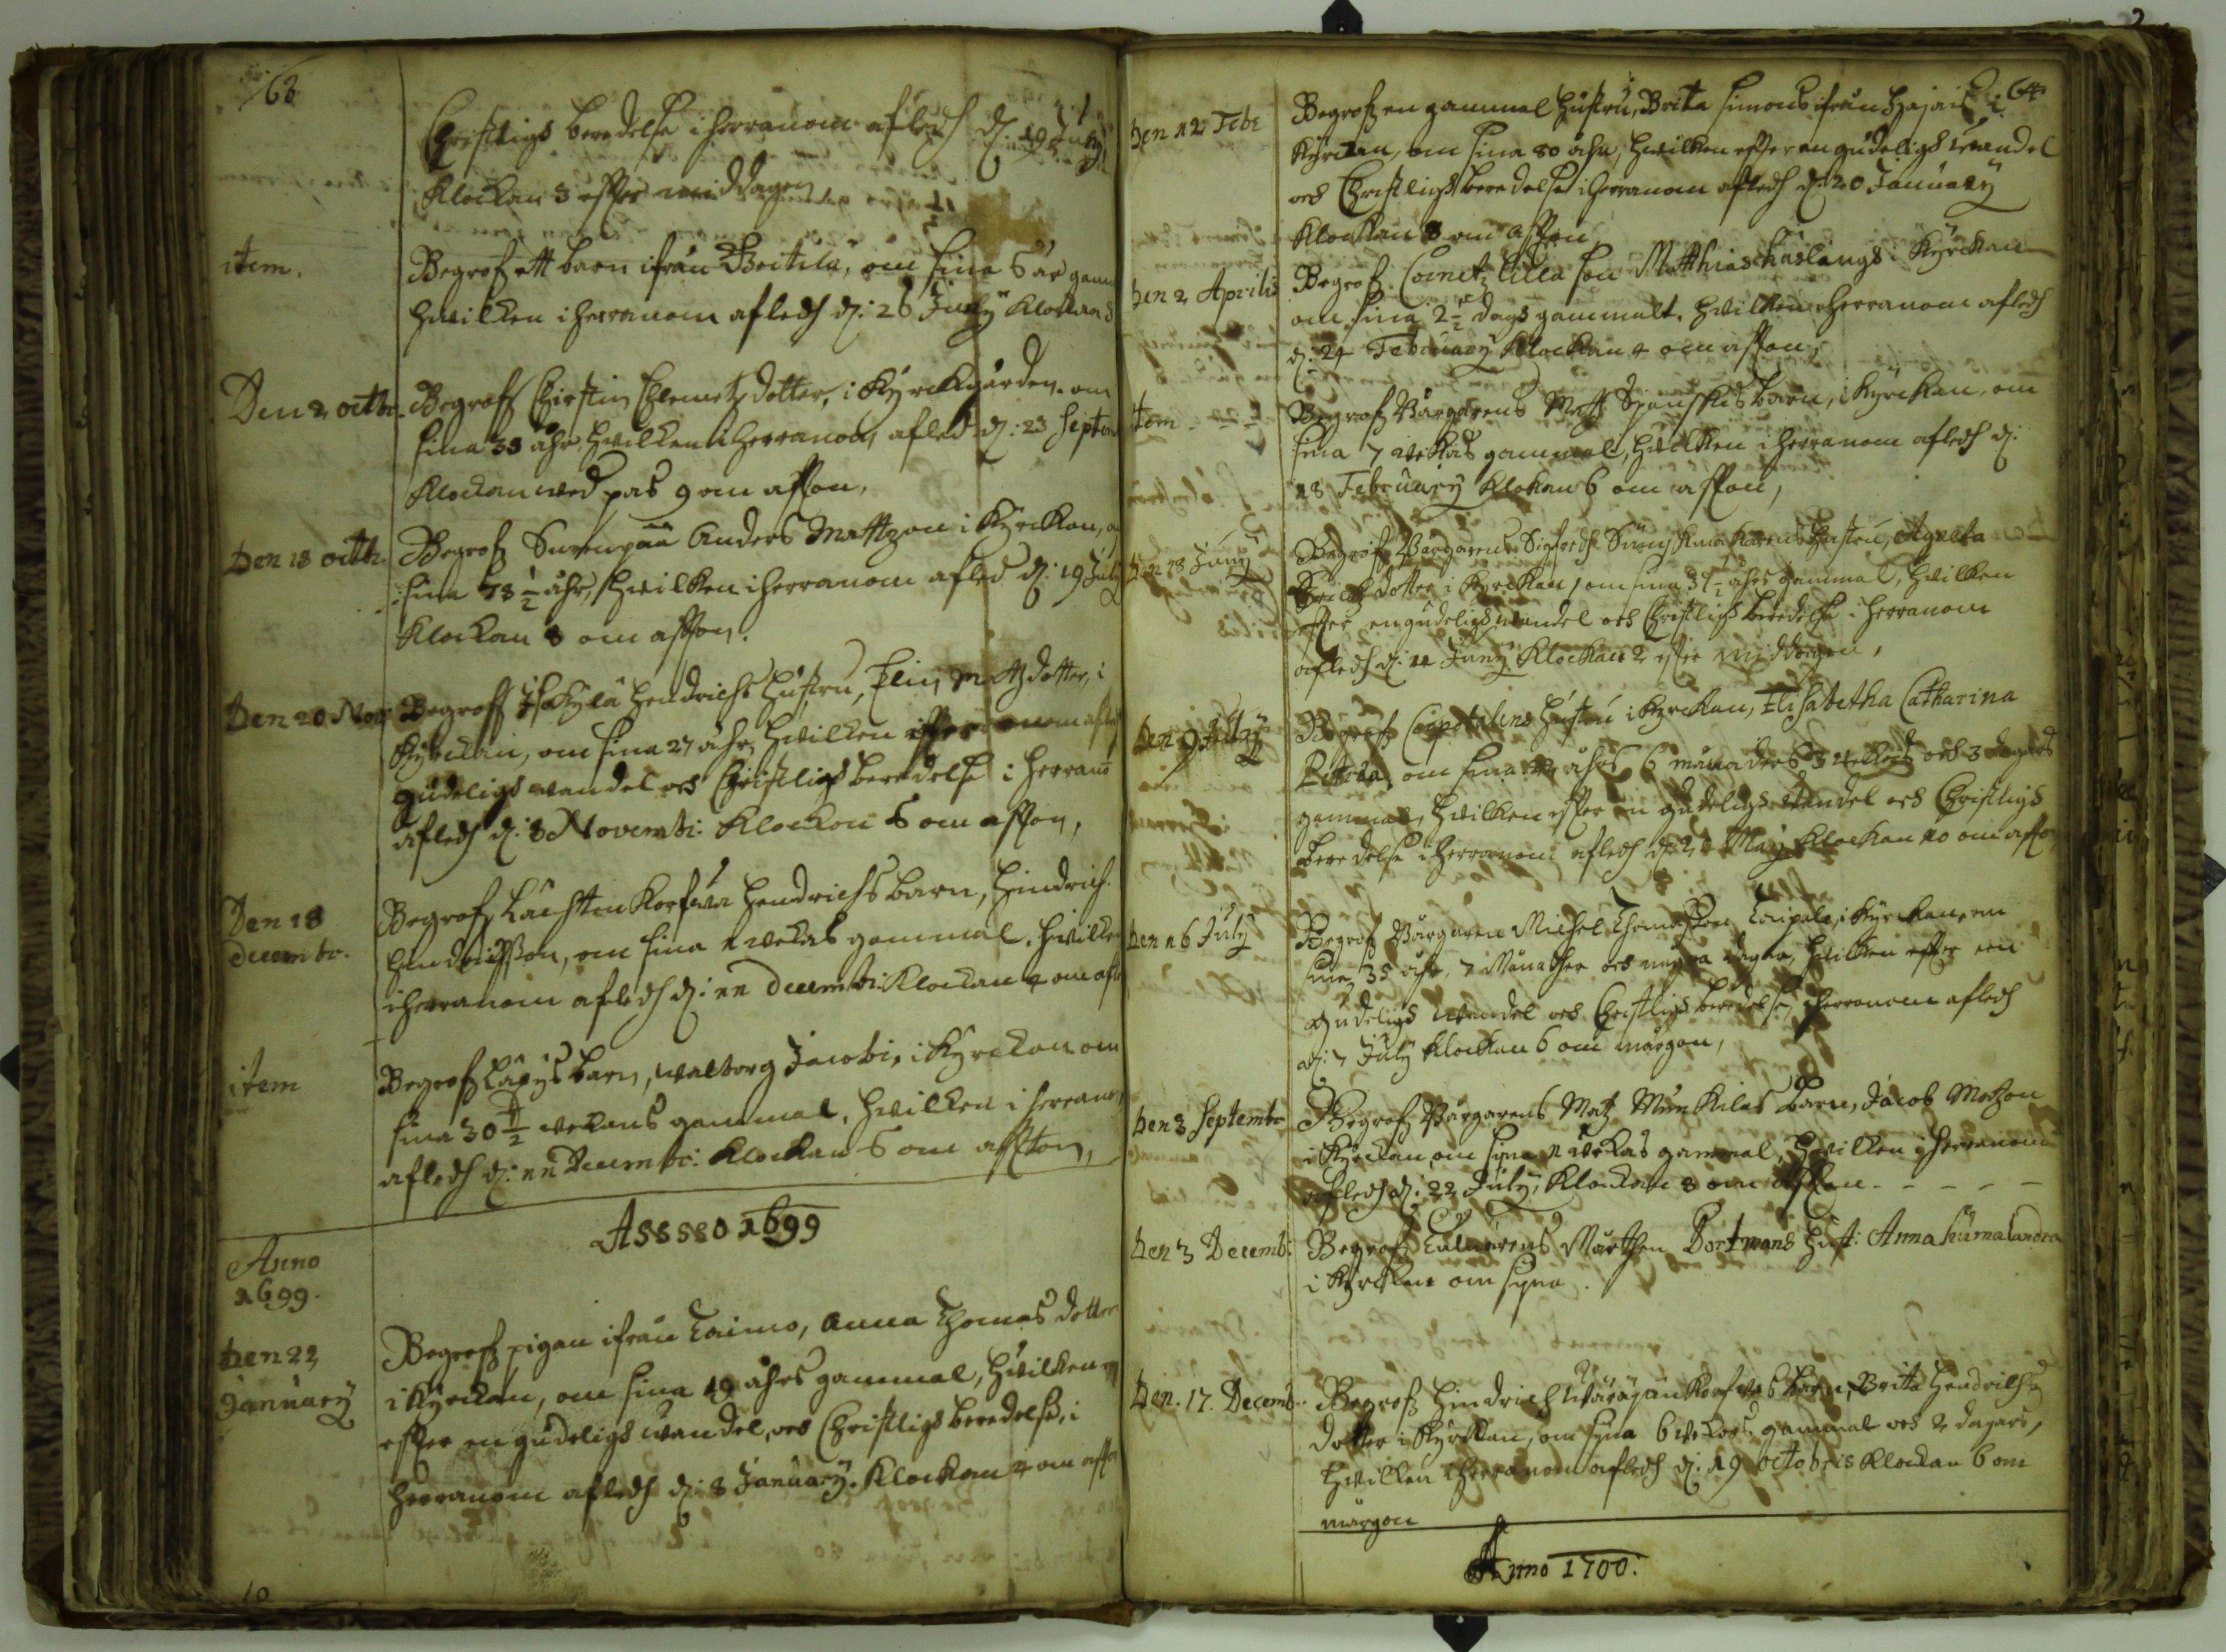 63
Christligs beredelse i herranom afledh d. 19 July
Klockan 3 effter middagen
item.
Begrofz ett barn ifrån, om sina 6 åhr gam
hwilken i herranom afledh d: 26 July Klockan 5
Den 2 octbr.
Begrofz Chirstin Clemetz dotter, i Kyrckgården. om
sina 33 åhr, hwilken i herranom afled d: 23 Septem
Klockan wed pas 9 om affton,
Den 18 octb.
Begrofz Surenpää Anders Mattzon i Kyrckan, om
sina 73 1/2 åhr, hwilken i herranom afled d: 19 July
Klockan 8 om affton.
Den 20 Nov
Begroff Hendrichs hustru, Elin Matzdotter, i
Kyrckan, om sina 27 åhr, hwilken effter
gudeligs wandel och Christligs beredelse i herrano
afledh d: 8 Novembr: Klockan 6 om affton,
Den 18
Decembr.
Begrofz Hendrichs barn, Hindrich
Hendrichsson, om sina wekas gammal. hwilken
i herranom afledh d: 11 Decembr: Klockan 4 om afft
item
Begrofz barn, Walborg Jacobi, i Kyrckan om
sina 30 1/2 wekans gammal, hwilken i herrano
afledh d: 11 Decembr: Klockan 6 om affton,
1699
Anno
1699.
Den 22
January
Begrofz pigan ifrån Taimo, Anna Thomas dotter
i Kyrckan, om sina 19 åhrs gammal, hwilken
effter en gudeligs wandel, och Christligs beredelse, i
herranom afledh d: 8 January. Klockan 4 om affton
64
Den 12 Febr
Begrofz en gammal hustru, Brita Simons ifrån i
Kyrckan, om sina 80 åhr, hwilken effter en gudeligs wandel
och Christligs beredelse i herranom afledh d: 20 January
Klockan 8 om affton
Den 2 Aprilis
Begrofz Cornetz lilla son Matthias i Kyrckan
om sina 2 1/2 dags gammalt. hwilken i herranom afledh
d: 24 February Klockan 4 om affton,
item
Begrofz Bårgarens Matts barn, i Kyrckan, om
sina 7 wekas gammal, hwilken i herranom afledh d:
28 February Klockan 6 om affton,
Den 18 Juny
Begrofz Bårgarens Sigfredh hustru, Agneta
dotter i Kyrckan, om sina åhrs gammal, hwilken
effter en gudeligs wandel och Christligs beredelse i herranom
afledh d: 14 Juny Klockan 2 effter middagen,
Den 9 July
Begrofz hustru i Kyrckan, Elisabetha Catharina
om sina åhrs 6 månaders 3 wekors och 3 dagars
gammal, hwilken effter en gudeligs wandel och Christligs
beredelse i herranom afledh d: 20 Maij Klockan 10 om affto
Den 16 July
Begrofz Bårgaren Michel Thomasson Taipale, i Kyrckan, om
sina 35 åhr, 7 Månadher och några dagar, hwilken effter een
gudeligs wandel och Christligs beredelse, i herranom afledh
d: 7 July Klockan 6 om mårgon,
Den 3 Septembr
Begrofz Bårgarens Matz Munkilas barn, Jacob Matzon
i Kyrckan om syna wekas gammal, hwilken i herranom
afledh d: 22 July, Klockan 8 om affton - - - -
Den 3 Decemb:
Begrofz Mårthen Dortmans hust: Anna humalandra
i Kyrckan om syna .
Den. 17. Decemb.
Begrofz Hindrich barn, Brita Hendrichs
dotter i Kyrckan, om syna 6 wekors gammal och 2 dagars,
hwilken i herranom afledh d: 19 octobris Klockan 6 om
mårgon
Anno 1700.